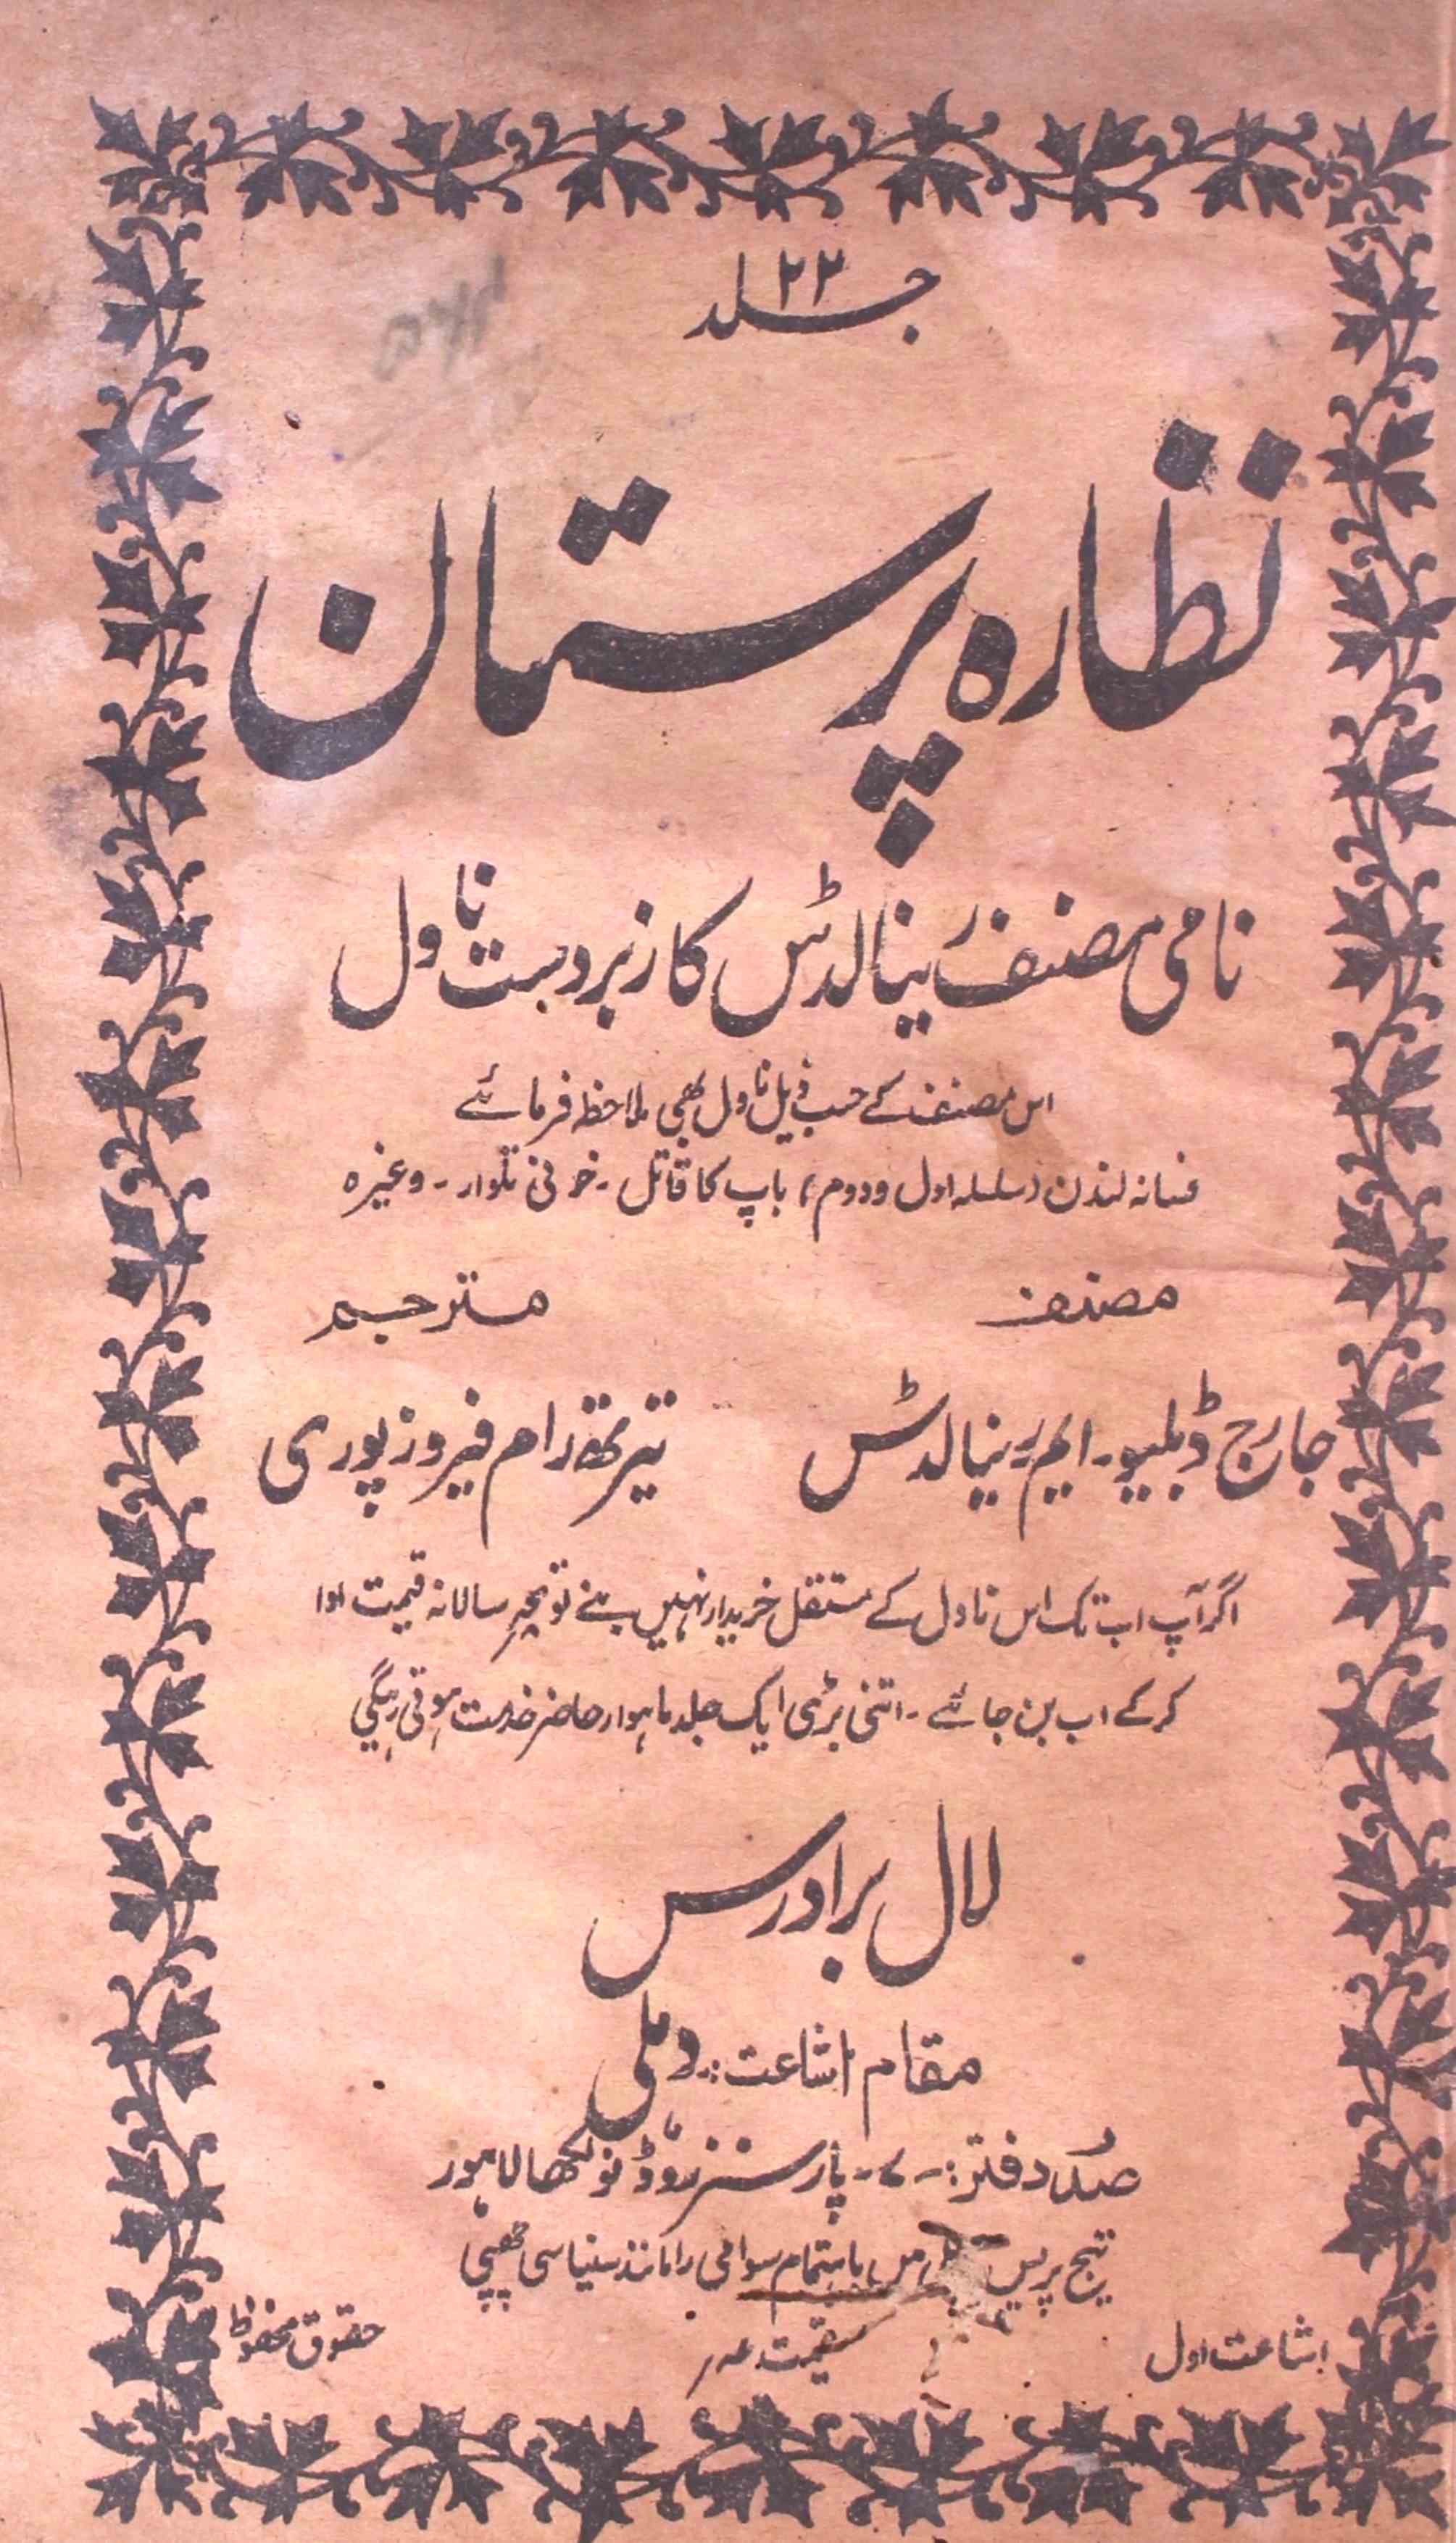 جلد ۲۲
نظارہ پرستان
نامی مصنف رینالڈس کا زبردست ناول
اس مصنف کے حسب ذیل ناول بھی ملاحظہ فرمائے
فسانہ لندن (سلسلہ اول و دوم) باپ کا قاتل - خونی تلوار - وغیرہ
مصنف
مترجم
جارج ڈبلیو - ایم رینالڈس
تیرتھ رام فیروزپوری
اگر آپ اب تک اس ناول کے مستقل خریدار نہیں بنے تو سالانہ قیمت ادا
کر کے اب بن جائے - اتنی بڑی ایک جلد ماہوار حاضر خدمت ہوتی رہیگی
لال برادرس
مقام اشاعت :- دہلی
صدر دفتر :- ۷ - پارسنز روڈ نولکھا لاہور
تیج پریس میں باہتمام سوامی رامانند سنیاسی چھپی
اشاعت اول
قیمت عہ ر
حقوق محفوظ